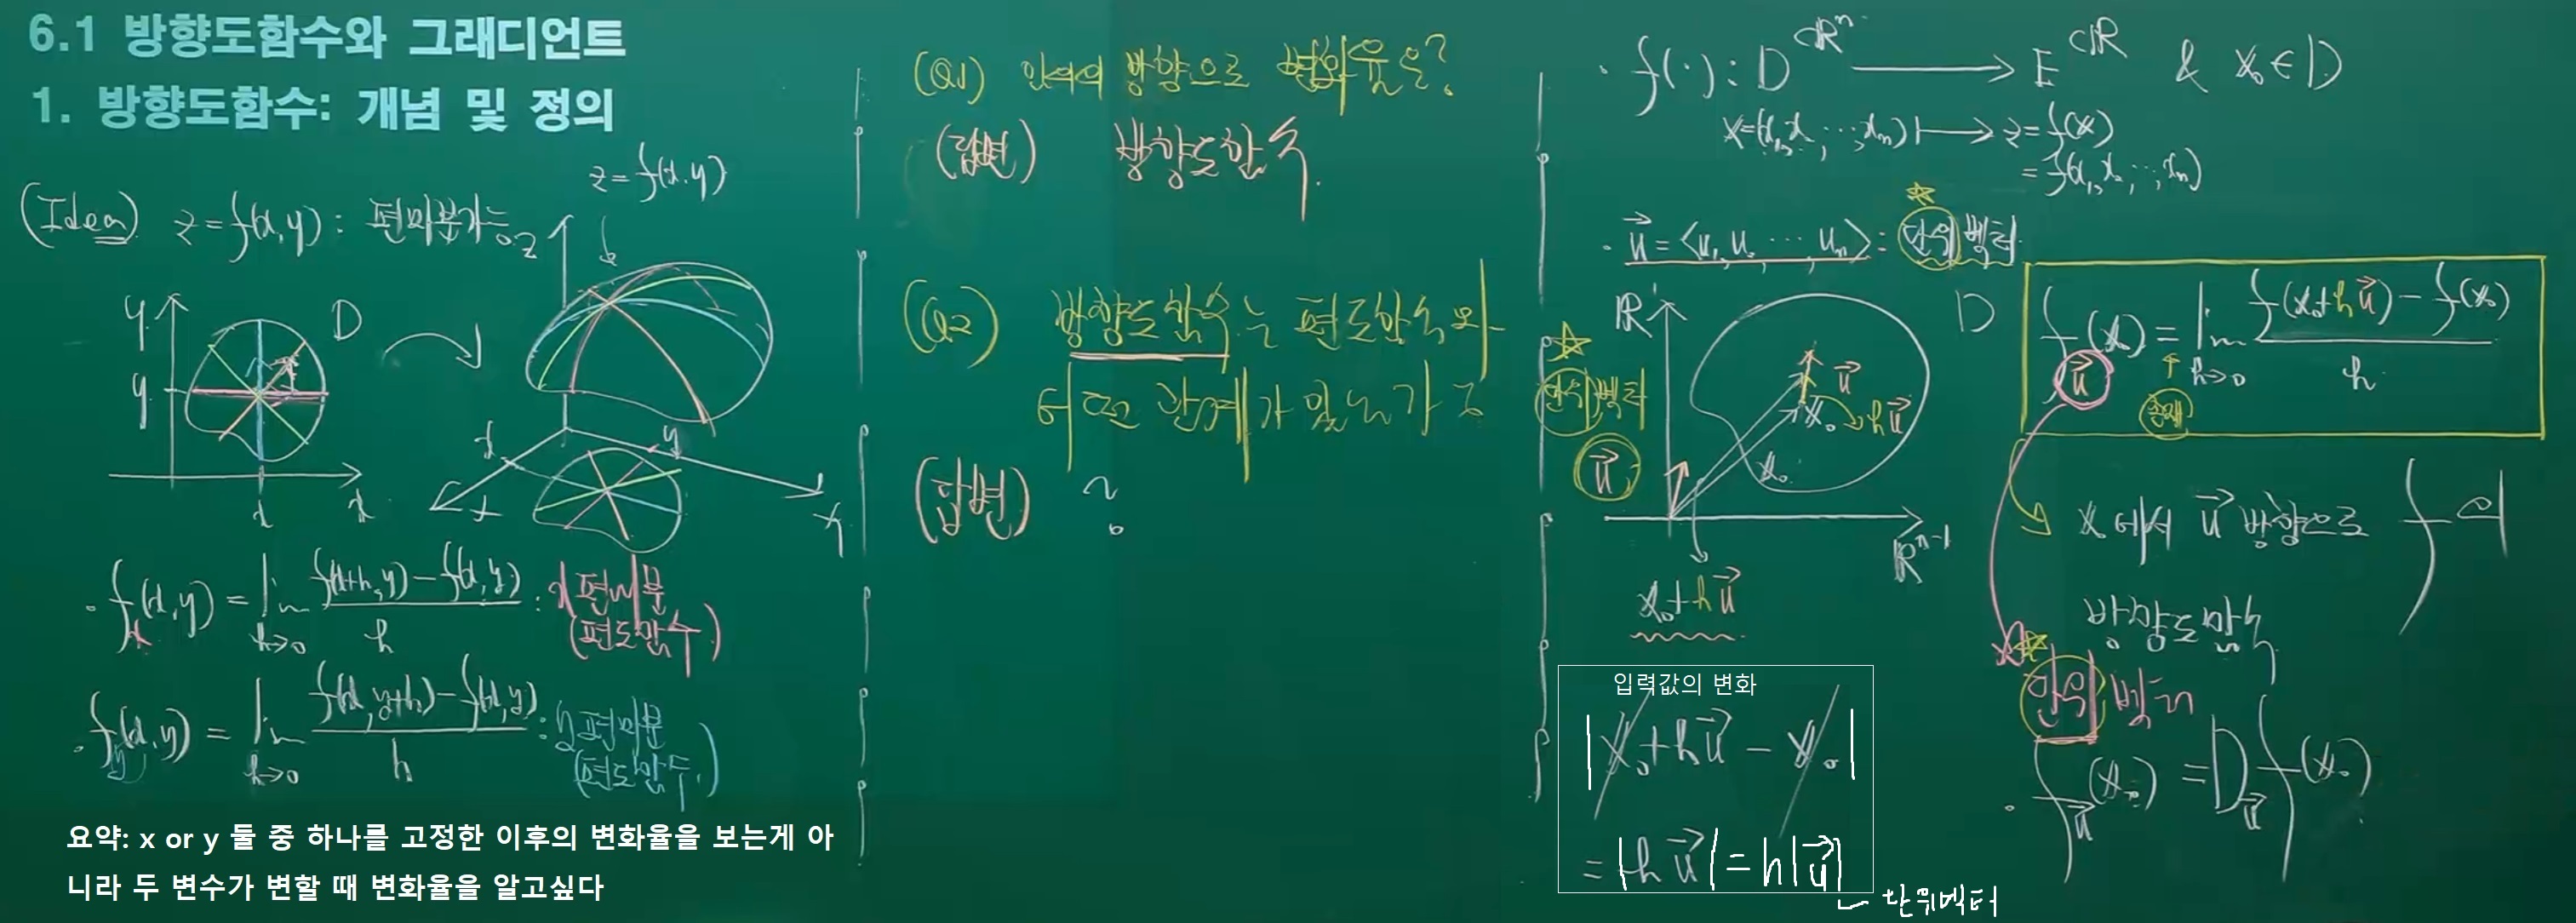 6.1 방향도함수와 그래디언트
1. 방향도함수: 개념 및 정의
(Idea) z=f(x,y): 편미분가능
z=f(x,y)
z
y
y
D
x
x
x
y
x
y
f_x(x,y) = lim_{h→0} (f(x+h,y)-f(x,y))/h : x편미분
(편도함수)
f_y(x,y) = lim_{h→0} (f(x,y+h)-f(x,y))/h : y편미분
(편도함수)
요약: x or y 둘 중 하나를 고정한 이후의 변화율을 보는게 아
니라 두 변수가 변할 때 변화율을 알고싶다
(Q1) 임의의 방향으로 변화율은?
(답변) 방향도함수.
(Q2) 방향도함수는 편도함수와
어떤 관계가 있는가?
(답변) ?
· f(·): D ⊂ℝⁿ → E ⊂ℝ & x₀∈D
x=(x₁,x₂,…,xₙ) ↦ z=f(x)
=f(x₁,x₂,…,xₙ)
· u⃗=<u₁,u₂,…,uₙ>: 단위벡터
ℝ¹
D
단위벡터
u⃗
u⃗
x₀
hu⃗
x₀
ℝⁿ⁻¹
x₀+hu⃗
f_u⃗(x₀) = lim_{h→0} (f(x₀+hu⃗)-f(x₀))/h
존재
x₀에서 u⃗ 방향으로 f의
방향도함수
단위벡터
· f_u⃗(x₀) = D_u⃗ f(x₀)
입력값의 변화
|x₀+hu⃗ - x₀|
= |hu⃗| = h|u⃗|
단위벡터